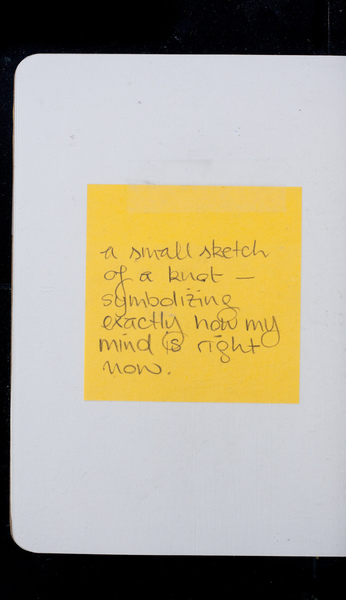 a small sketch
of a knot –
symbolizing
exactly how my
mind is right
now.